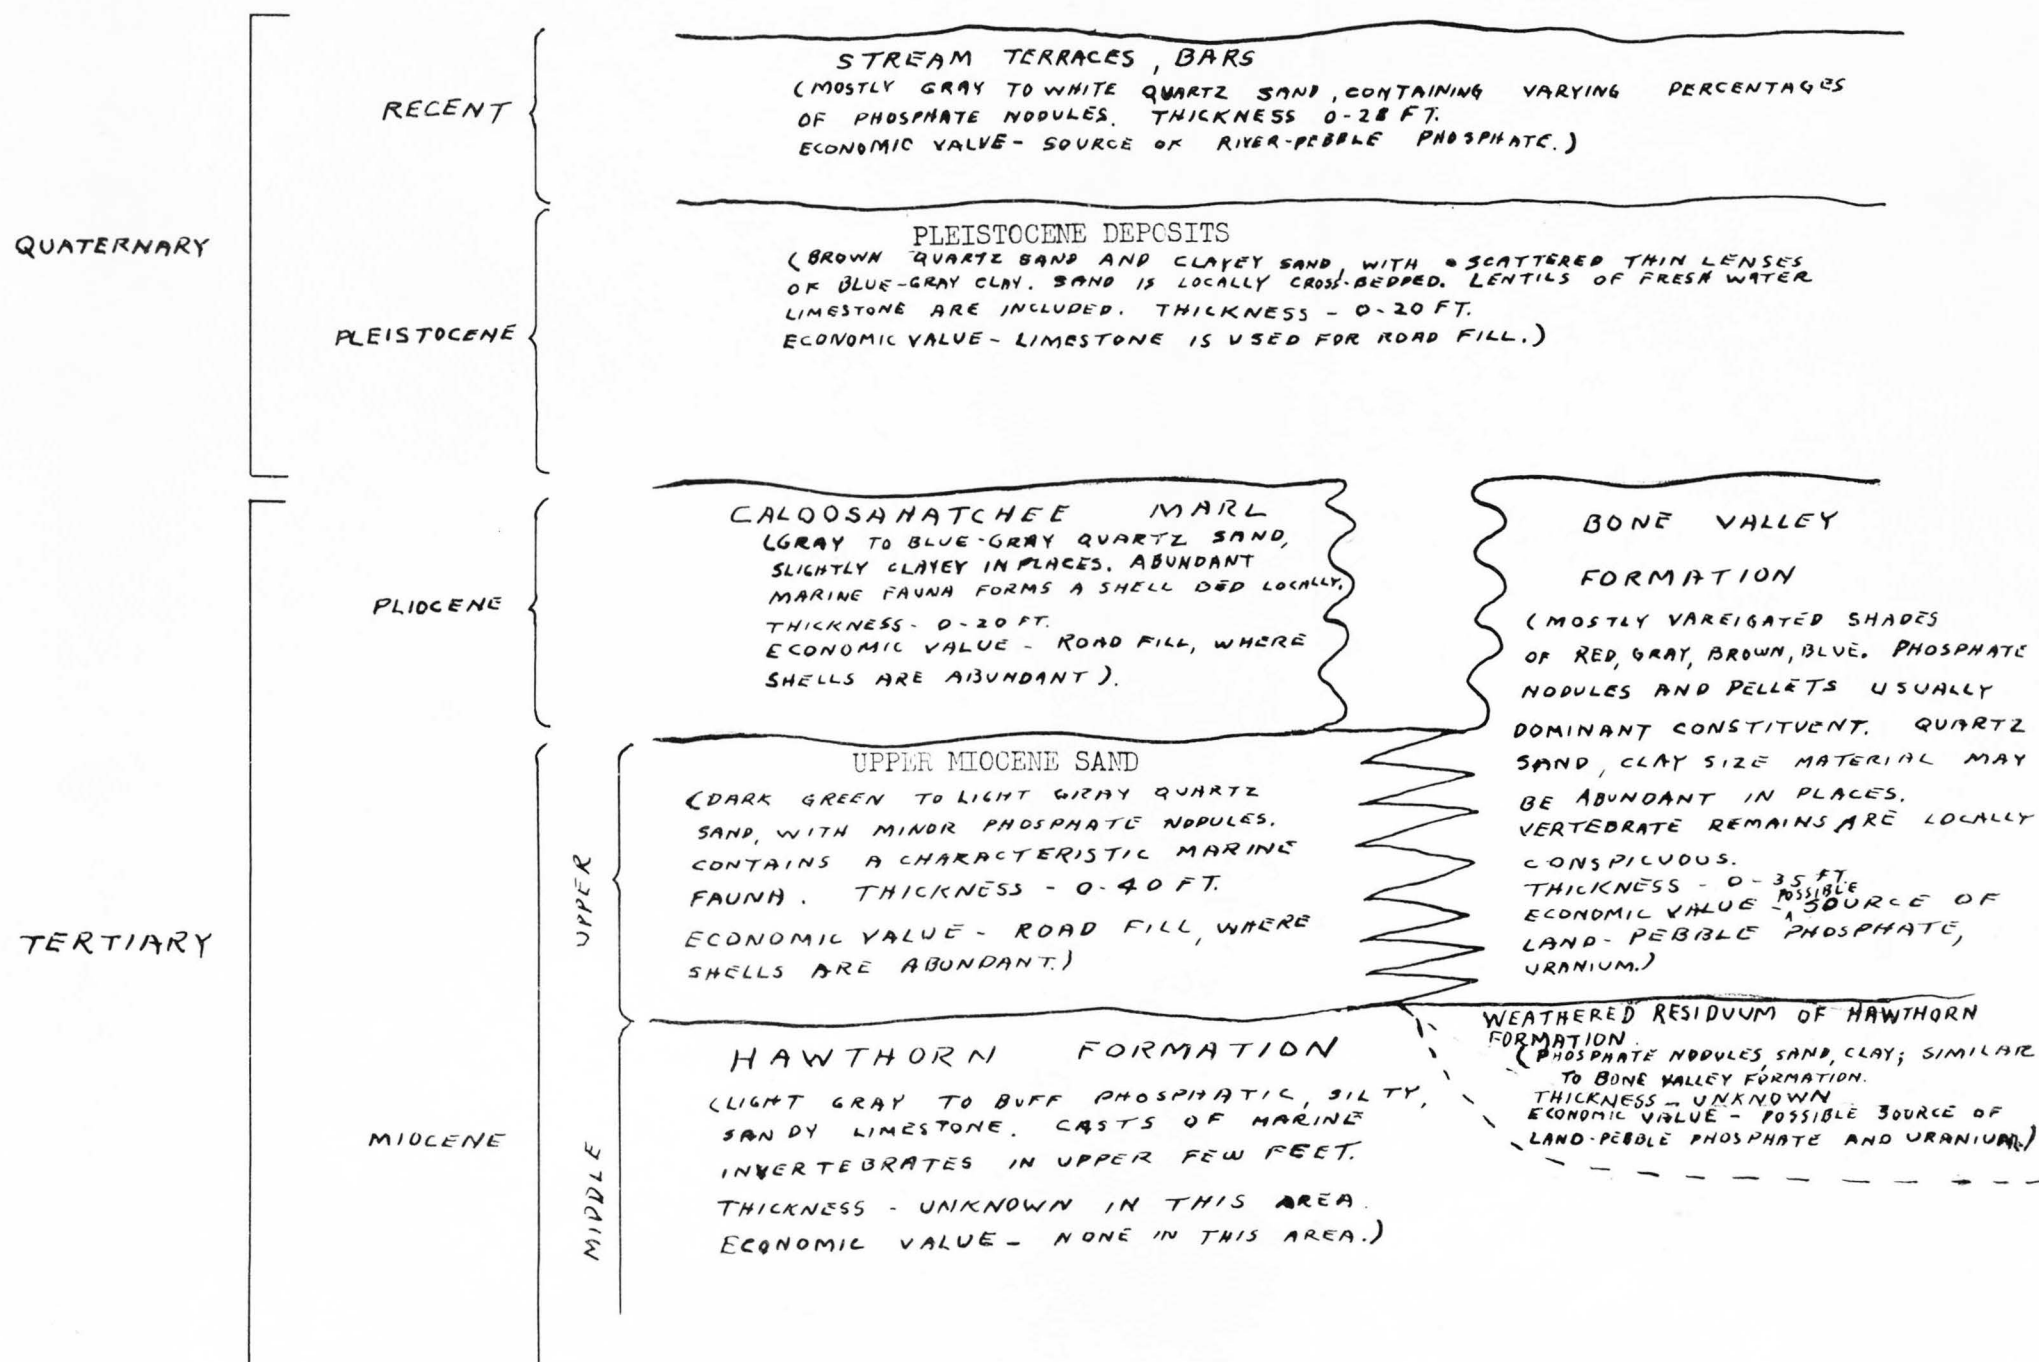 QUATERNARY
RECENT
STREAM TERRACES, BARS
(MOSTLY GRAY TO WHITE QUARTZ SAND, CONTAINING VARYING PERCENTAGES
OF PHOSPHATE NODULES. THICKNESS 0-28 FT.
ECONOMIC VALUE - SOURCE OF RIVER-PEBBLE PHOSPHATE.)
PLEISTOCENE
PLEISTOCENE DEPOSITS
(BROWN QUARTZ SAND AND CLAYEY SAND, WITH SCATTERED THIN LENSES
OF BLUE-GRAY CLAY. SAND IS LOCALLY CROSS-BEDDED. LENTILS OF FRESH WATER
LIMESTONE ARE INCLUDED. THICKNESS - 0-20 FT.
ECONOMIC VALUE - LIMESTONE IS USED FOR ROAD FILL.)
TERTIARY
PLIOCENE
CALOOSAHATCHEE MARL
(GRAY TO BLUE-GRAY QUARTZ SAND,
SLIGHTLY CLAYEY IN PLACES. ABUNDANT
MARINE FAUNA FORMS A SHELL BED LOCALLY.
THICKNESS - 0-20 FT.
ECONOMIC VALUE - ROAD FILL, WHERE
SHELLS ARE ABUNDANT).
BONE VALLEY
FORMATION
(MOSTLY VAREIGATED SHADES
OF RED, GRAY, BROWN, BLUE. PHOSPHATE
NODULES AND PELLETS USUALLY
DOMINANT CONSTITUENT. QUARTZ
SAND, CLAY SIZE MATERIAL MAY
BE ABUNDANT IN PLACES.
VERTEBRATE REMAINS ARE LOCALLY
CONSPICUOUS.
THICKNESS - 0-35 FT.
ECONOMIC VALUE - POSSIBLE SOURCE OF
LAND-PEBBLE PHOSPHATE,
URANIUM.)
MIOCENE
UPPER
UPPER MIOCENE SAND
(DARK GREEN TO LIGHT GRAY QUARTZ
SAND, WITH MINOR PHOSPHATE NODULES.
CONTAINS A CHARACTERISTIC MARINE
FAUNA. THICKNESS - 0-40 FT.
ECONOMIC VALUE - ROAD FILL, WHERE
SHELLS ARE ABUNDANT.)
MIDDLE
HAWTHORN FORMATION
(LIGHT GRAY TO BUFF PHOSPHATIC, SILTY,
SANDY LIMESTONE. CASTS OF MARINE
INVERTEBRATES IN UPPER FEW FEET.
THICKNESS - UNKNOWN IN THIS AREA.
ECONOMIC VALUE - NONE IN THIS AREA.)
WEATHERED RESIDUUM OF HAWTHORN
FORMATION.
(PHOSPHATE NODULES, SAND, CLAY; SIMILAR
TO BONE VALLEY FORMATION.
THICKNESS - UNKNOWN
ECONOMIC VALUE - POSSIBLE SOURCE OF
LAND-PEBBLE PHOSPHATE AND URANIUM.)